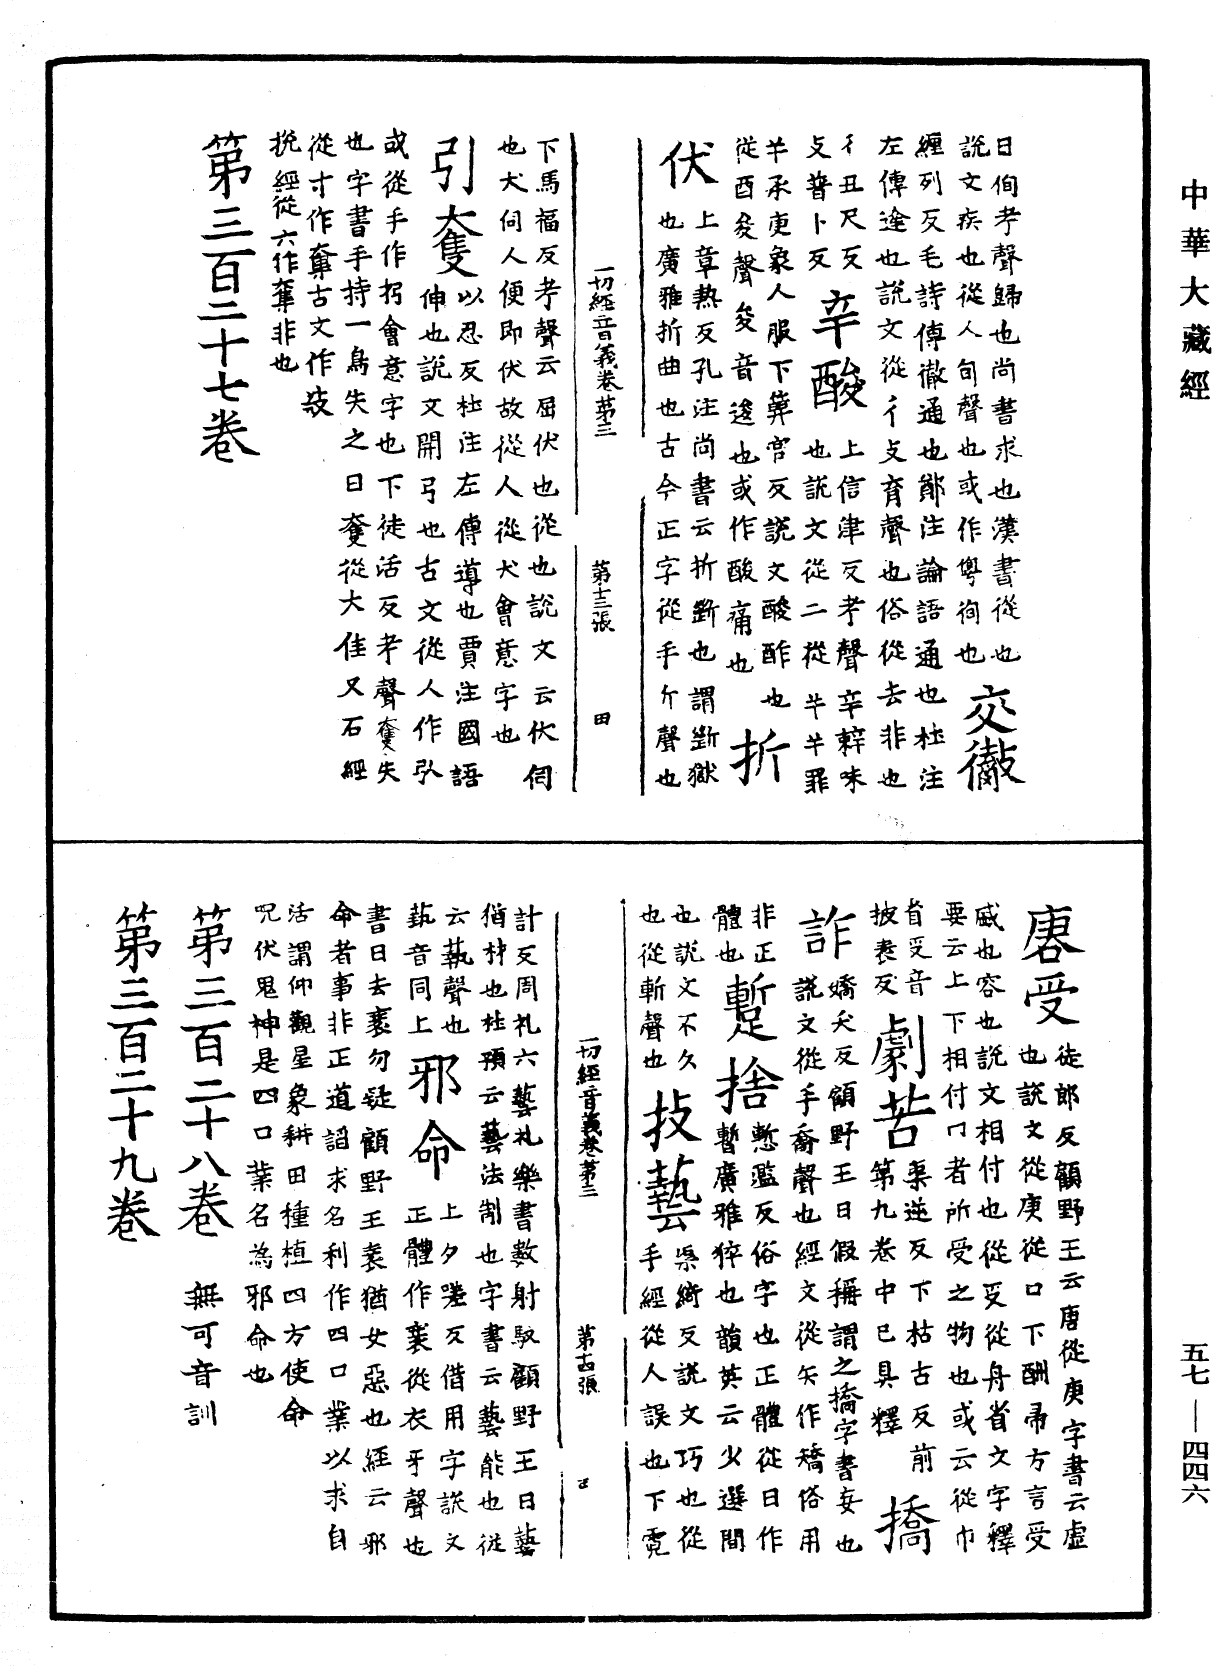 中華大藏經
日侚考聲歸也尚書求也漢書從也
說文疾也從人旬聲也或作㽦徇也
交徹
纏列反毛詩傳徹通也鄭注論語通也杜注
左傳達也說文從彳攴育聲也俗從去非也
彳丑尺反
攴普卜反
辛酸
上信津反考聲辛辣味
也說文從二從䇂䇂罪
䇂承庚象人服下䔉官反說文酸酢也
從酉夋聲夋音逡也或作酸痛也
折伏
上章熱反孔注尚書云折斷也謂斷獄
也廣雅折曲也古今正字從手斤聲也
一切經音義卷第三 第十三張 田
下馬福反考聲云屈伏也從也說文云伏伺
也犬伺人便即伏故從人從犬會意字也
引奪
以忍反杜注左傳導也賈注國語
伸也說文開弓也古文從人作弘
或從手作扔會意字也下徒活反考聲奪失
也字書手持一鳥失之曰奪從大隹又石經
從寸作奪古文作敓
捝經從六作奪非也
第三百二十七卷
唐受
徒郎反顧野王云唐從庚字書云虛
也說文從庚從口下酬帚方言受
盛也容也說文相付也從受從舟省文字釋
要云上下相付冂者所受之物也或云從巾
省受音
披表反
劇苦
渠逆反下枯古反前
第九卷中已具釋
撟詐
嬌夭反顧野王曰假稱謂之撟字書妄也
說文從手喬聲也經文從矢作矯俗用
非正
體也
蹔捨
慙濫反俗字也正體從日作
暫廣雅猝也韻英云少選間
也說文不久
也從斬聲也
技藝
渠綺反說文巧也從
手經從人誤也下霓
一切經音義卷第三 第十四張 田
計反周礼六藝礼樂書數射馭顧野王曰藝
猶材也杜預云藝法制也字書云藝能也從
云埶聲也
埶音同上
邪命
上夕嗟反借用字說文
正體作衺從衣牙聲也
書曰去衺勿疑顧野王衺猶女惡也經云邪
命者事非正道諂求名利作四口業以求自
活謂仰觀星象耕田種植四方使命
呪伏鬼神是四口業名為邪命也
第三百二十八卷 無可音訓
第三百二十九卷
五七—四四六